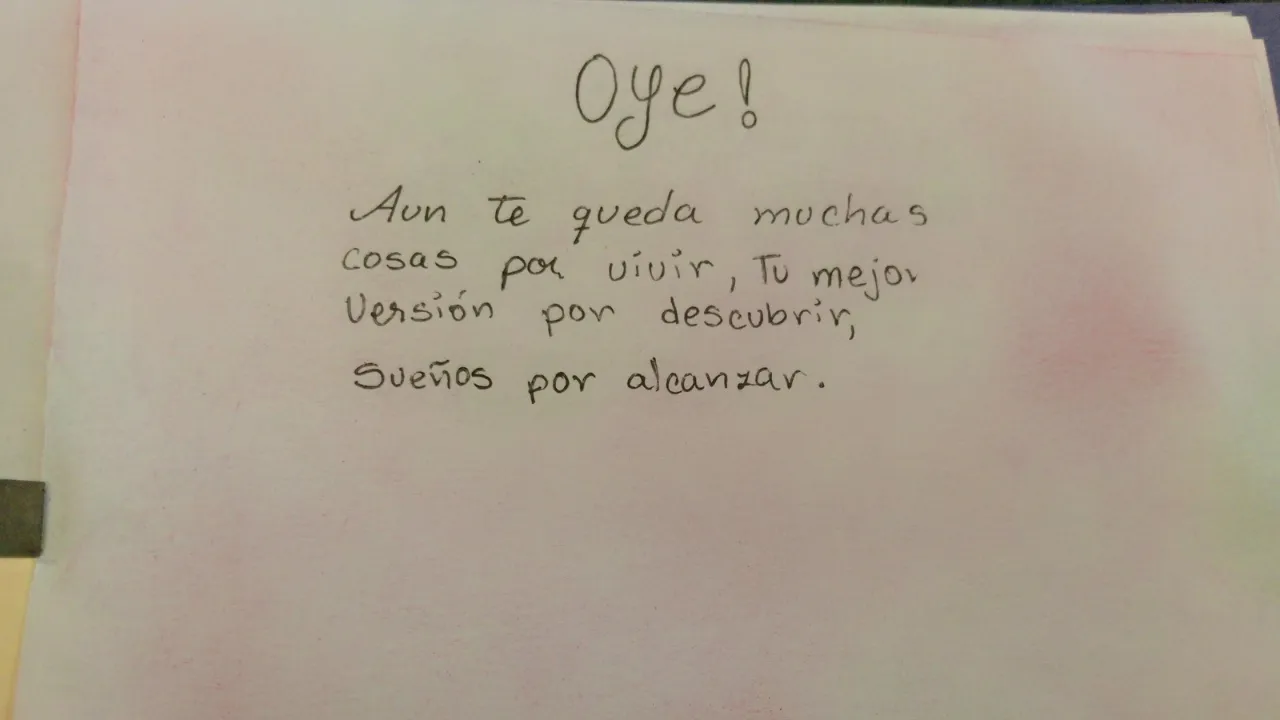 Oye!
Aun te queda muchas
cosas por vivir, Tu mejor
Versión por descubrir,
Sueños por alcanzar.